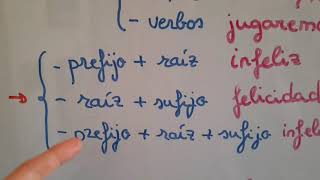 - verbos jugaremo
- prefijo + raíz infeliz
→ - raíz + sufijo felicidad
- prefijo + raíz + sufijo infe